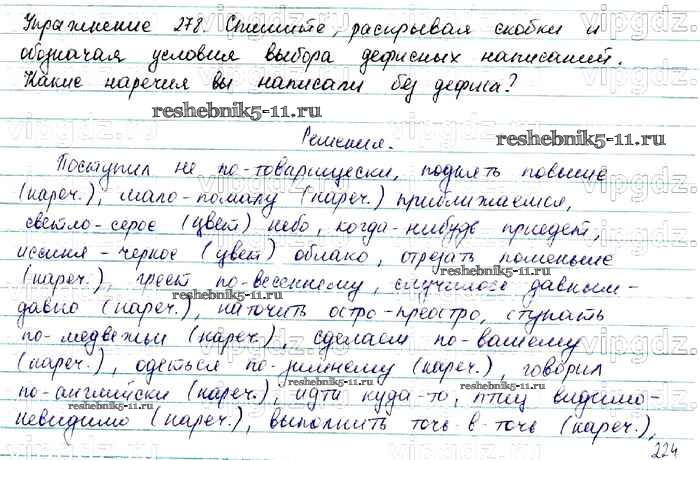 Упражнение 278. Спишите, раскрывая скобки и
обозначая условия выбора дефисных написаний.
Какие наречия вы написали без дефиса?
reshebnik5-11.ru
reshebnik5-11.ru
Решения.
Поступил не по-товарищески, поднять повыше
(нареч.), мало-помалу (нареч.) приближаемся,
светло-серое (цвет) небо, когда-нибудь приедет,
иссиня-черное (цвет) облако, отрезать поменьше
reshebnik5-11.ru
(нареч.), греет по-весеннему, случилось давным-
reshebnik5-11.ru
давно (нареч.), наточить остро-преостро, ступать
по-медвежьи (нареч.), сделаем по-вашему
(нареч.), одеться по-зимнему (нареч.), говорил
reshebnik5-11.ru
по-английски (нареч.), идти куда-то, птиц видимо-
reshebnik5-11.ru
reshebnik5-11.ru
невидимо (нареч.), выполнить точь-в-точь (нареч.),
224